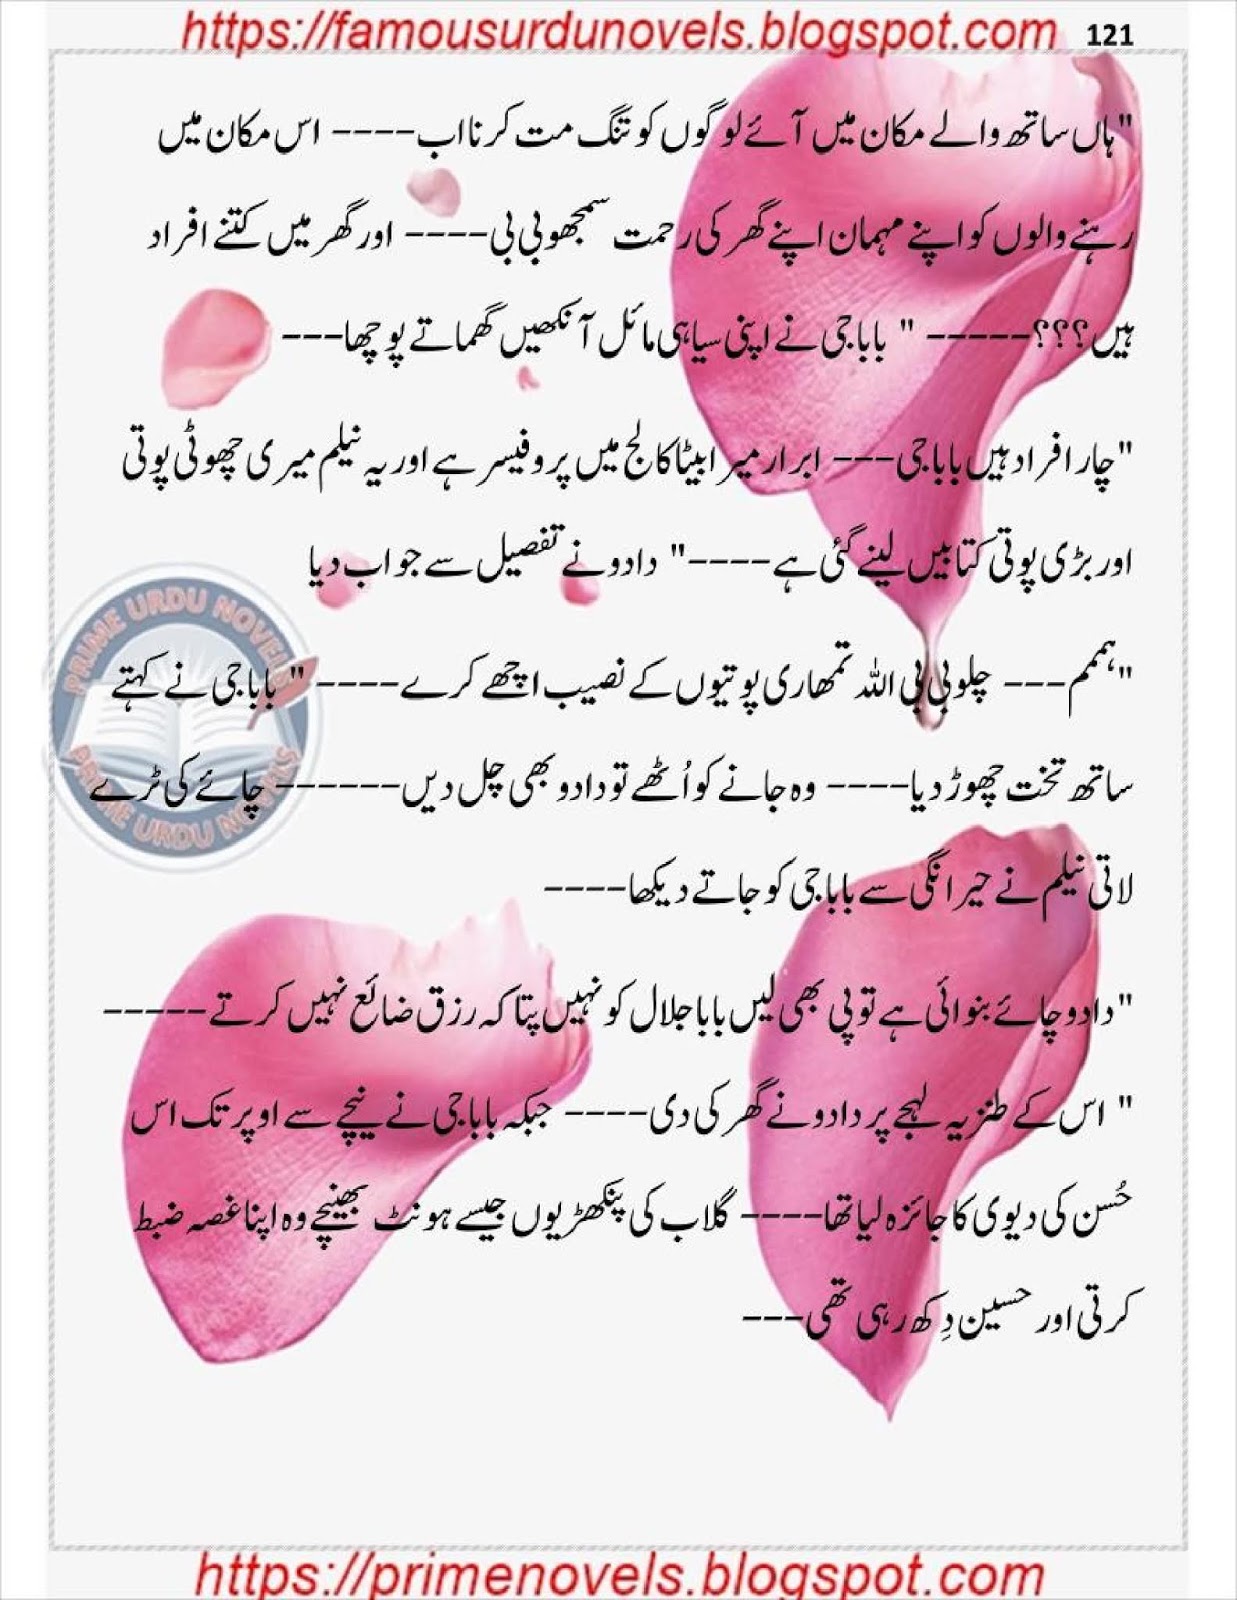 https://famousurdunovels.blogspot.com 121
"ہاں ساتھ والے مکان میں آئے لوگوں کو تنگ مت کرنا اب---- اس مکان میں
رہنے والوں کو اپنے مہمان اپنے گھر کی رحمت سمجھو بی بی---- اور گھر میں کتنے افراد
ہیں؟؟؟----- " بابا جی نے اپنی سیاہی مائل آنکھیں گھماتے پوچھا---
"چار افراد ہیں بابا جی--- ابرار میرا بیٹا کالج میں پروفیسر ہے اور یہ نیلم میری چھوٹی پوتی
اور بڑی پوتی کتابیں لینے گئی ہے----" دادو نے تفصیل سے جواب دیا
"ہمم--- چلو بی بی اللہ تمھاری پوتیوں کے نصیب اچھے کرے---- " بابا جی نے کہتے
ساتھ تخت چھوڑ دیا---- وہ جانے کو اُٹھے تو دادو بھی چل دیں------ چائے کی ٹرے
لاتی نیلم نے حیرانگی سے بابا جی کو جاتے دیکھا----
"دادو چائے بنوائی ہے تو پی بھی لیں بابا جلال کو نہیں پتا کہ رزق ضائع نہیں کرتے-----
" اس کے طنزیہ لہجے پر دادو نے گھرکی دی---- جبکہ بابا جی نے نیچے سے اوپر تک اس
حُسن کی دیوی کا جائزہ لیا تھا---- گلاب کی پنکھڑیوں جیسے ہونٹ بھینچے وہ اپنا غصہ ضبط
کرتی اور حسین دِکھ رہی تھی---
PRIME URDU NOVELS
PRIME URDU NOVELS
https://primenovels.blogspot.com